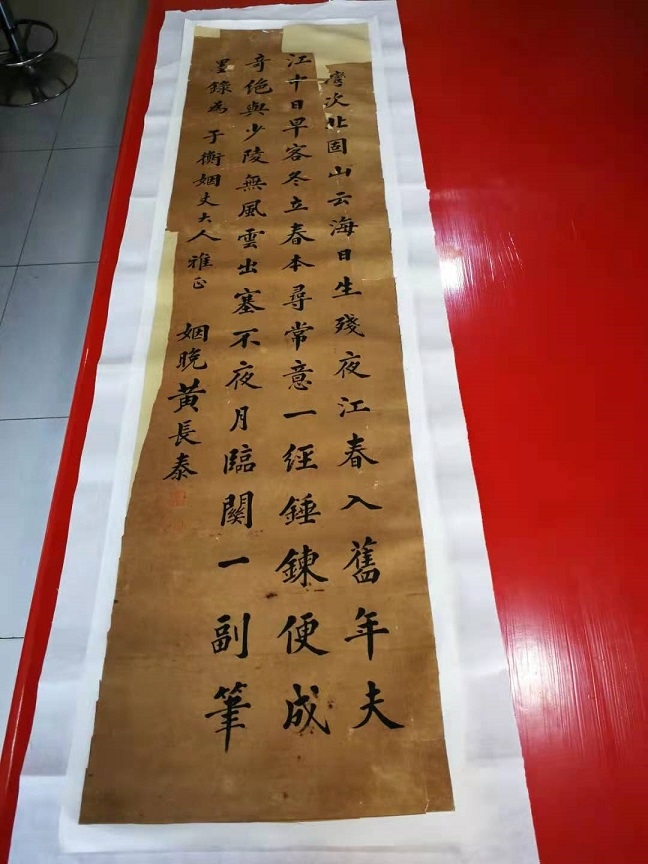 灣次北固山云海日生殘夜江春入舊年夫
江十日早客冬立春本尋常意一經錘鍊便成
奇絕與少陵無風雲出塞不夜月臨關一副筆
墨錄為 子衡姻丈大人雅正
姻晚黃長泰